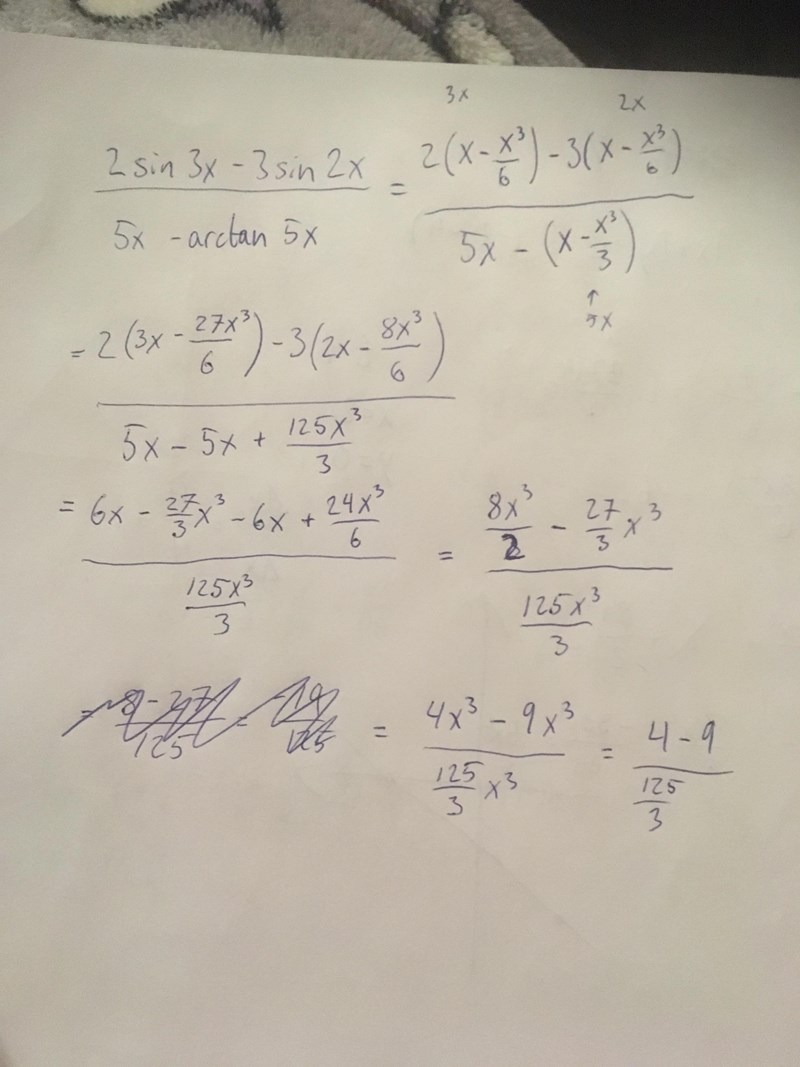 3x 2x
(2 sin 3x - 3 sin 2x)/(5x - arctan 5x) = (2(x - x³/6) - 3(x - x³/6))/(5x - (x - x³/3))
↑
5x
= (2(3x - 27x³/6) - 3(2x - 8x³/6))/(5x - 5x + 125x³/3)
= (6x - 27/3 x³ - 6x + 24x³/6)/(125x³/3) = (8x³/2 - 27/3 x³)/(125x³/3)
= (4x³ - 9x³)/(125/3 x³) = (4 - 9)/(125/3)